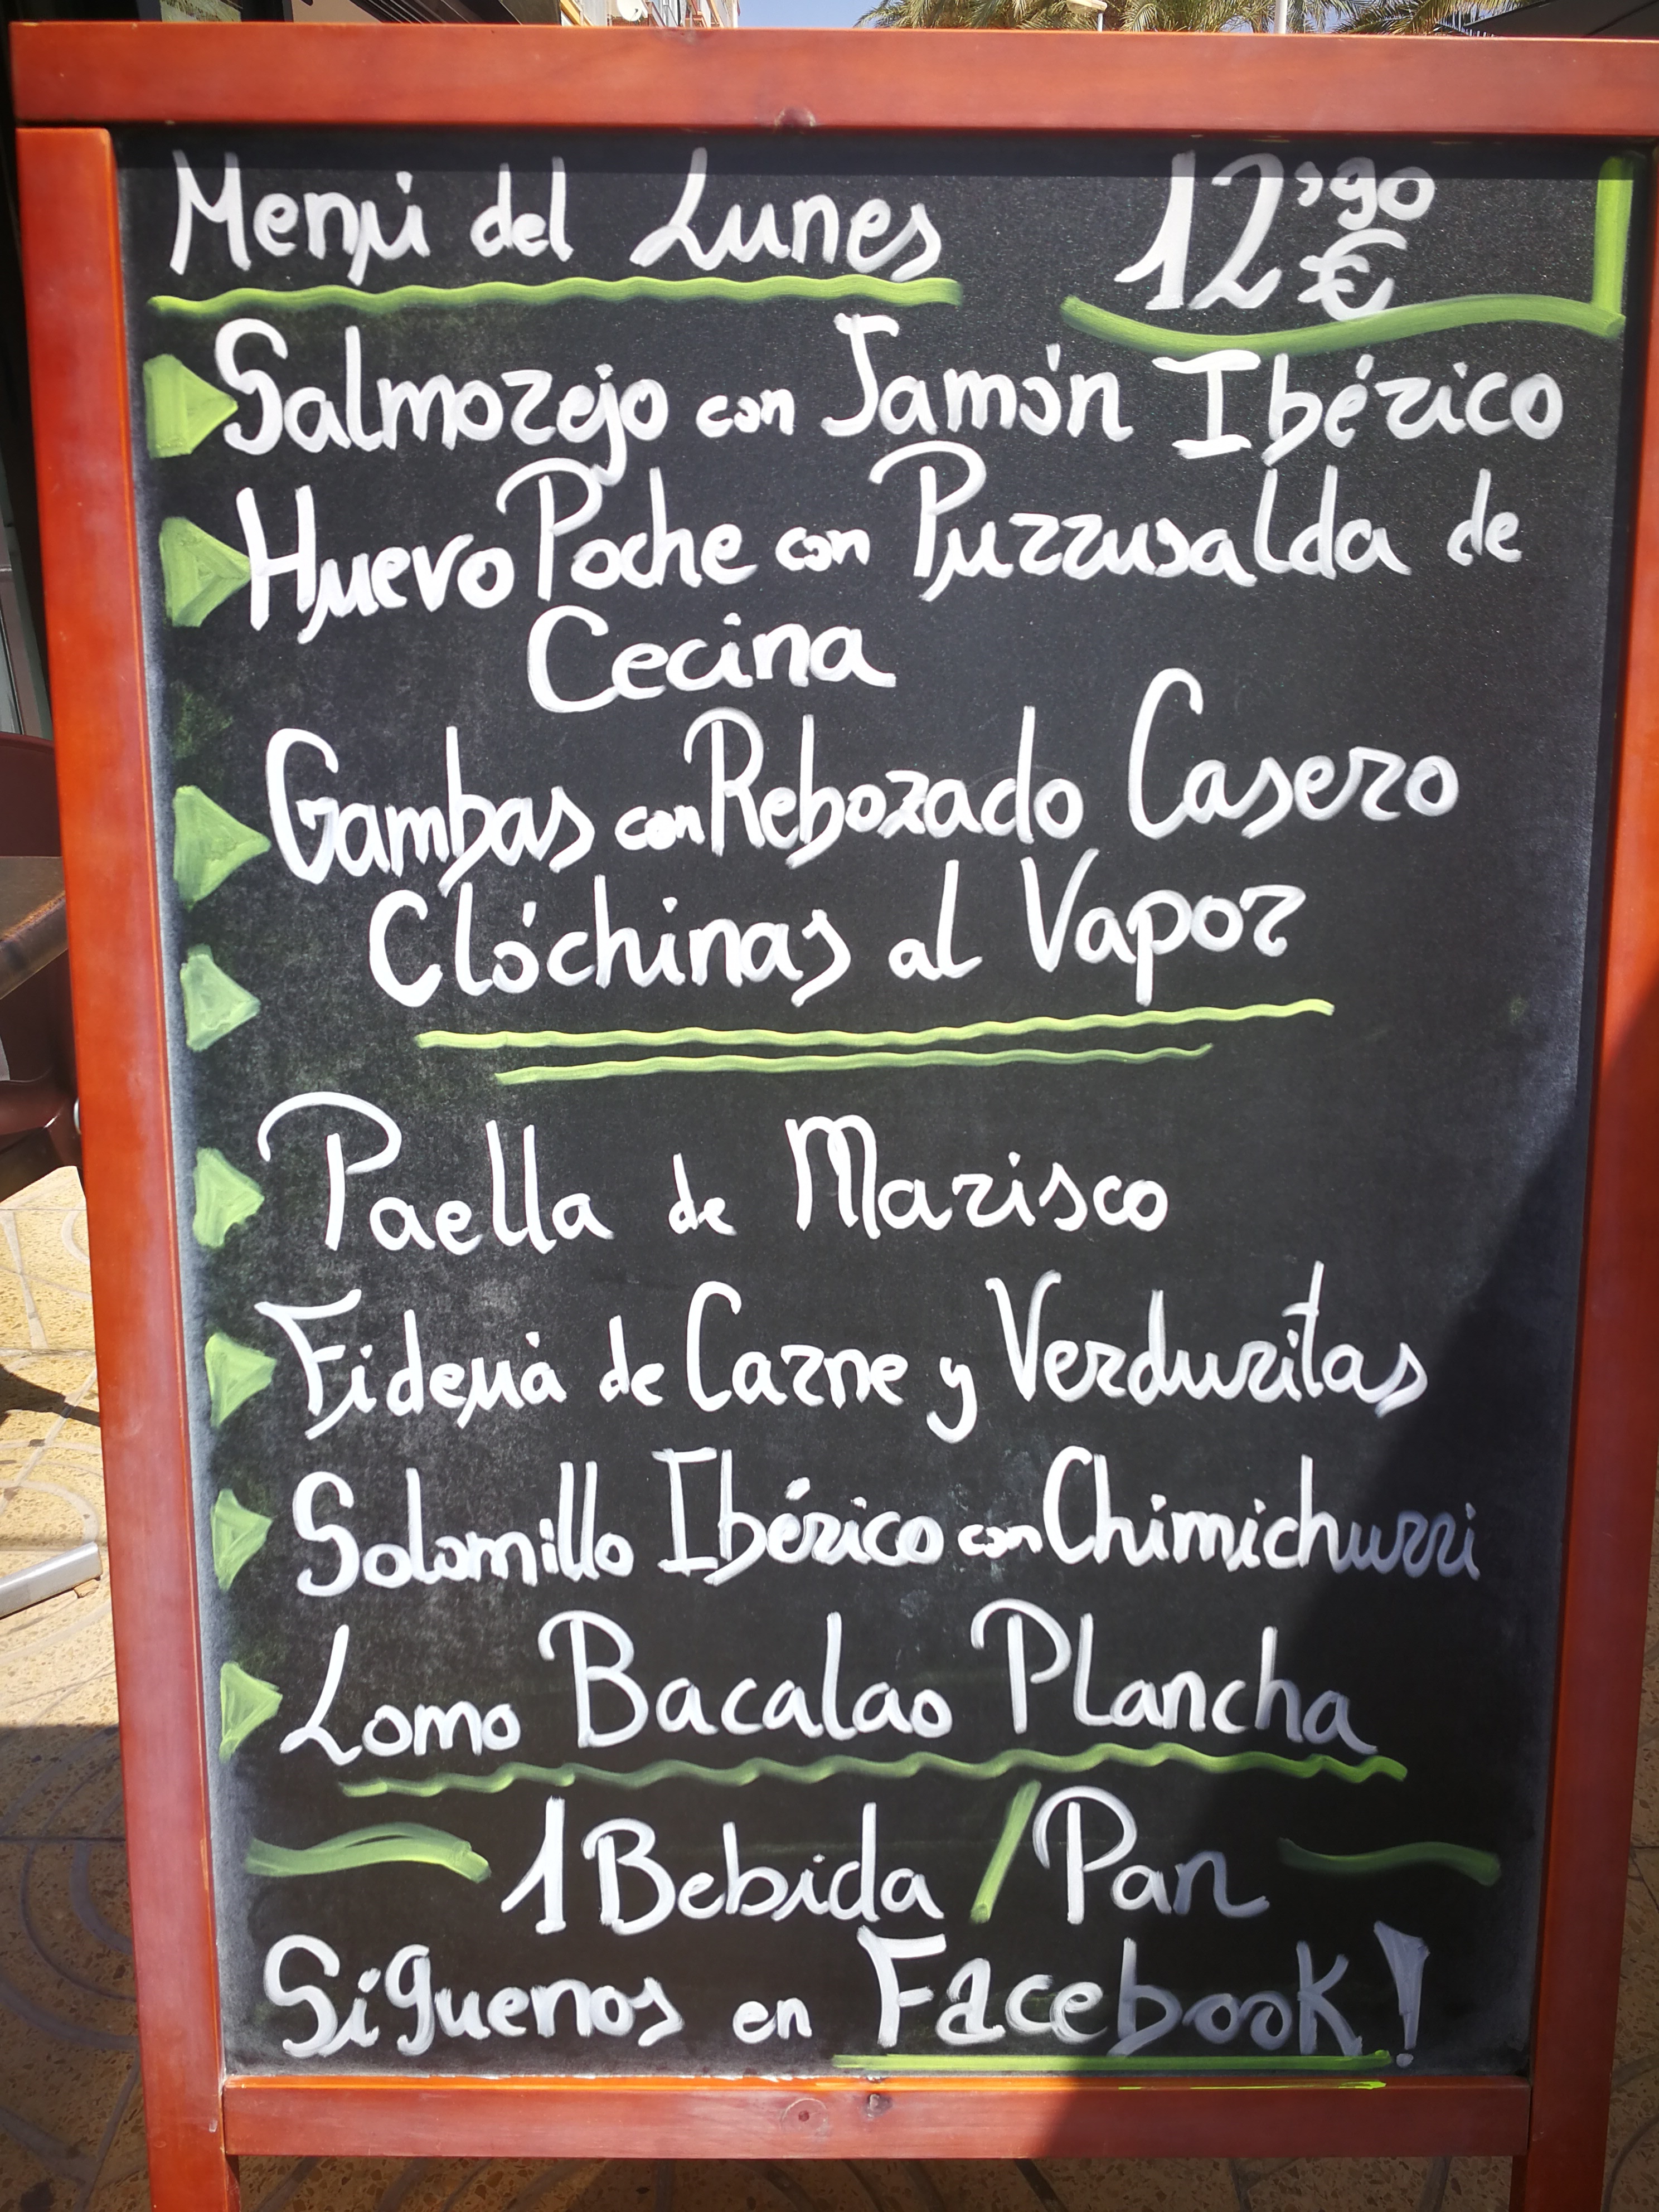 Menú del Lunes 12'90 €
Salmorejo con Jamón Ibérico
Huevo Poche con Puzzusalda de
Cecina
Gambas con Rebozado Casero
Clóchinas al Vapor
Paella de Marisco
Fideuà de Carne y Verduritas
Solomillo Ibérico con Chimichurri
Lomo Bacalao Plancha
1 Bebida / Pan
Síguenos en Facebook!